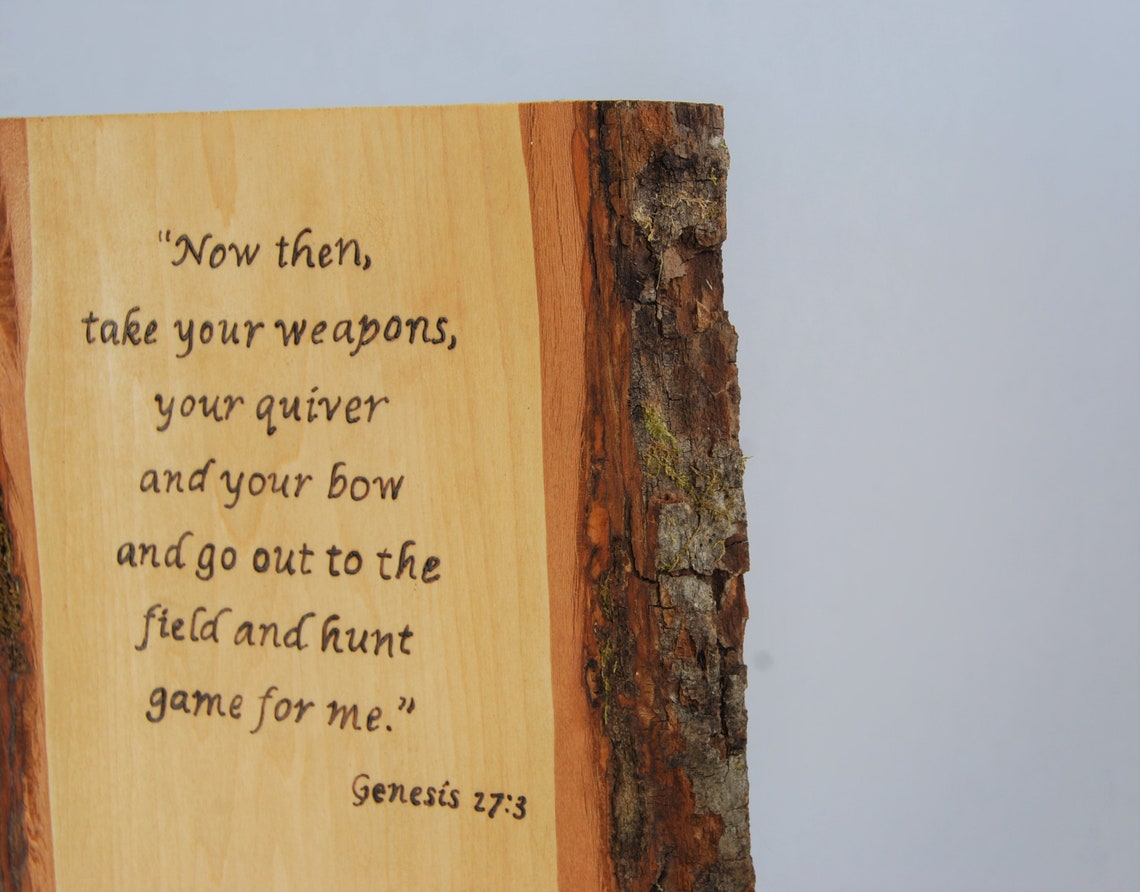 “Now then,
take your weapons,
your quiver
and your bow
and go out to the
field and hunt
game for me.”
Genesis 27:3